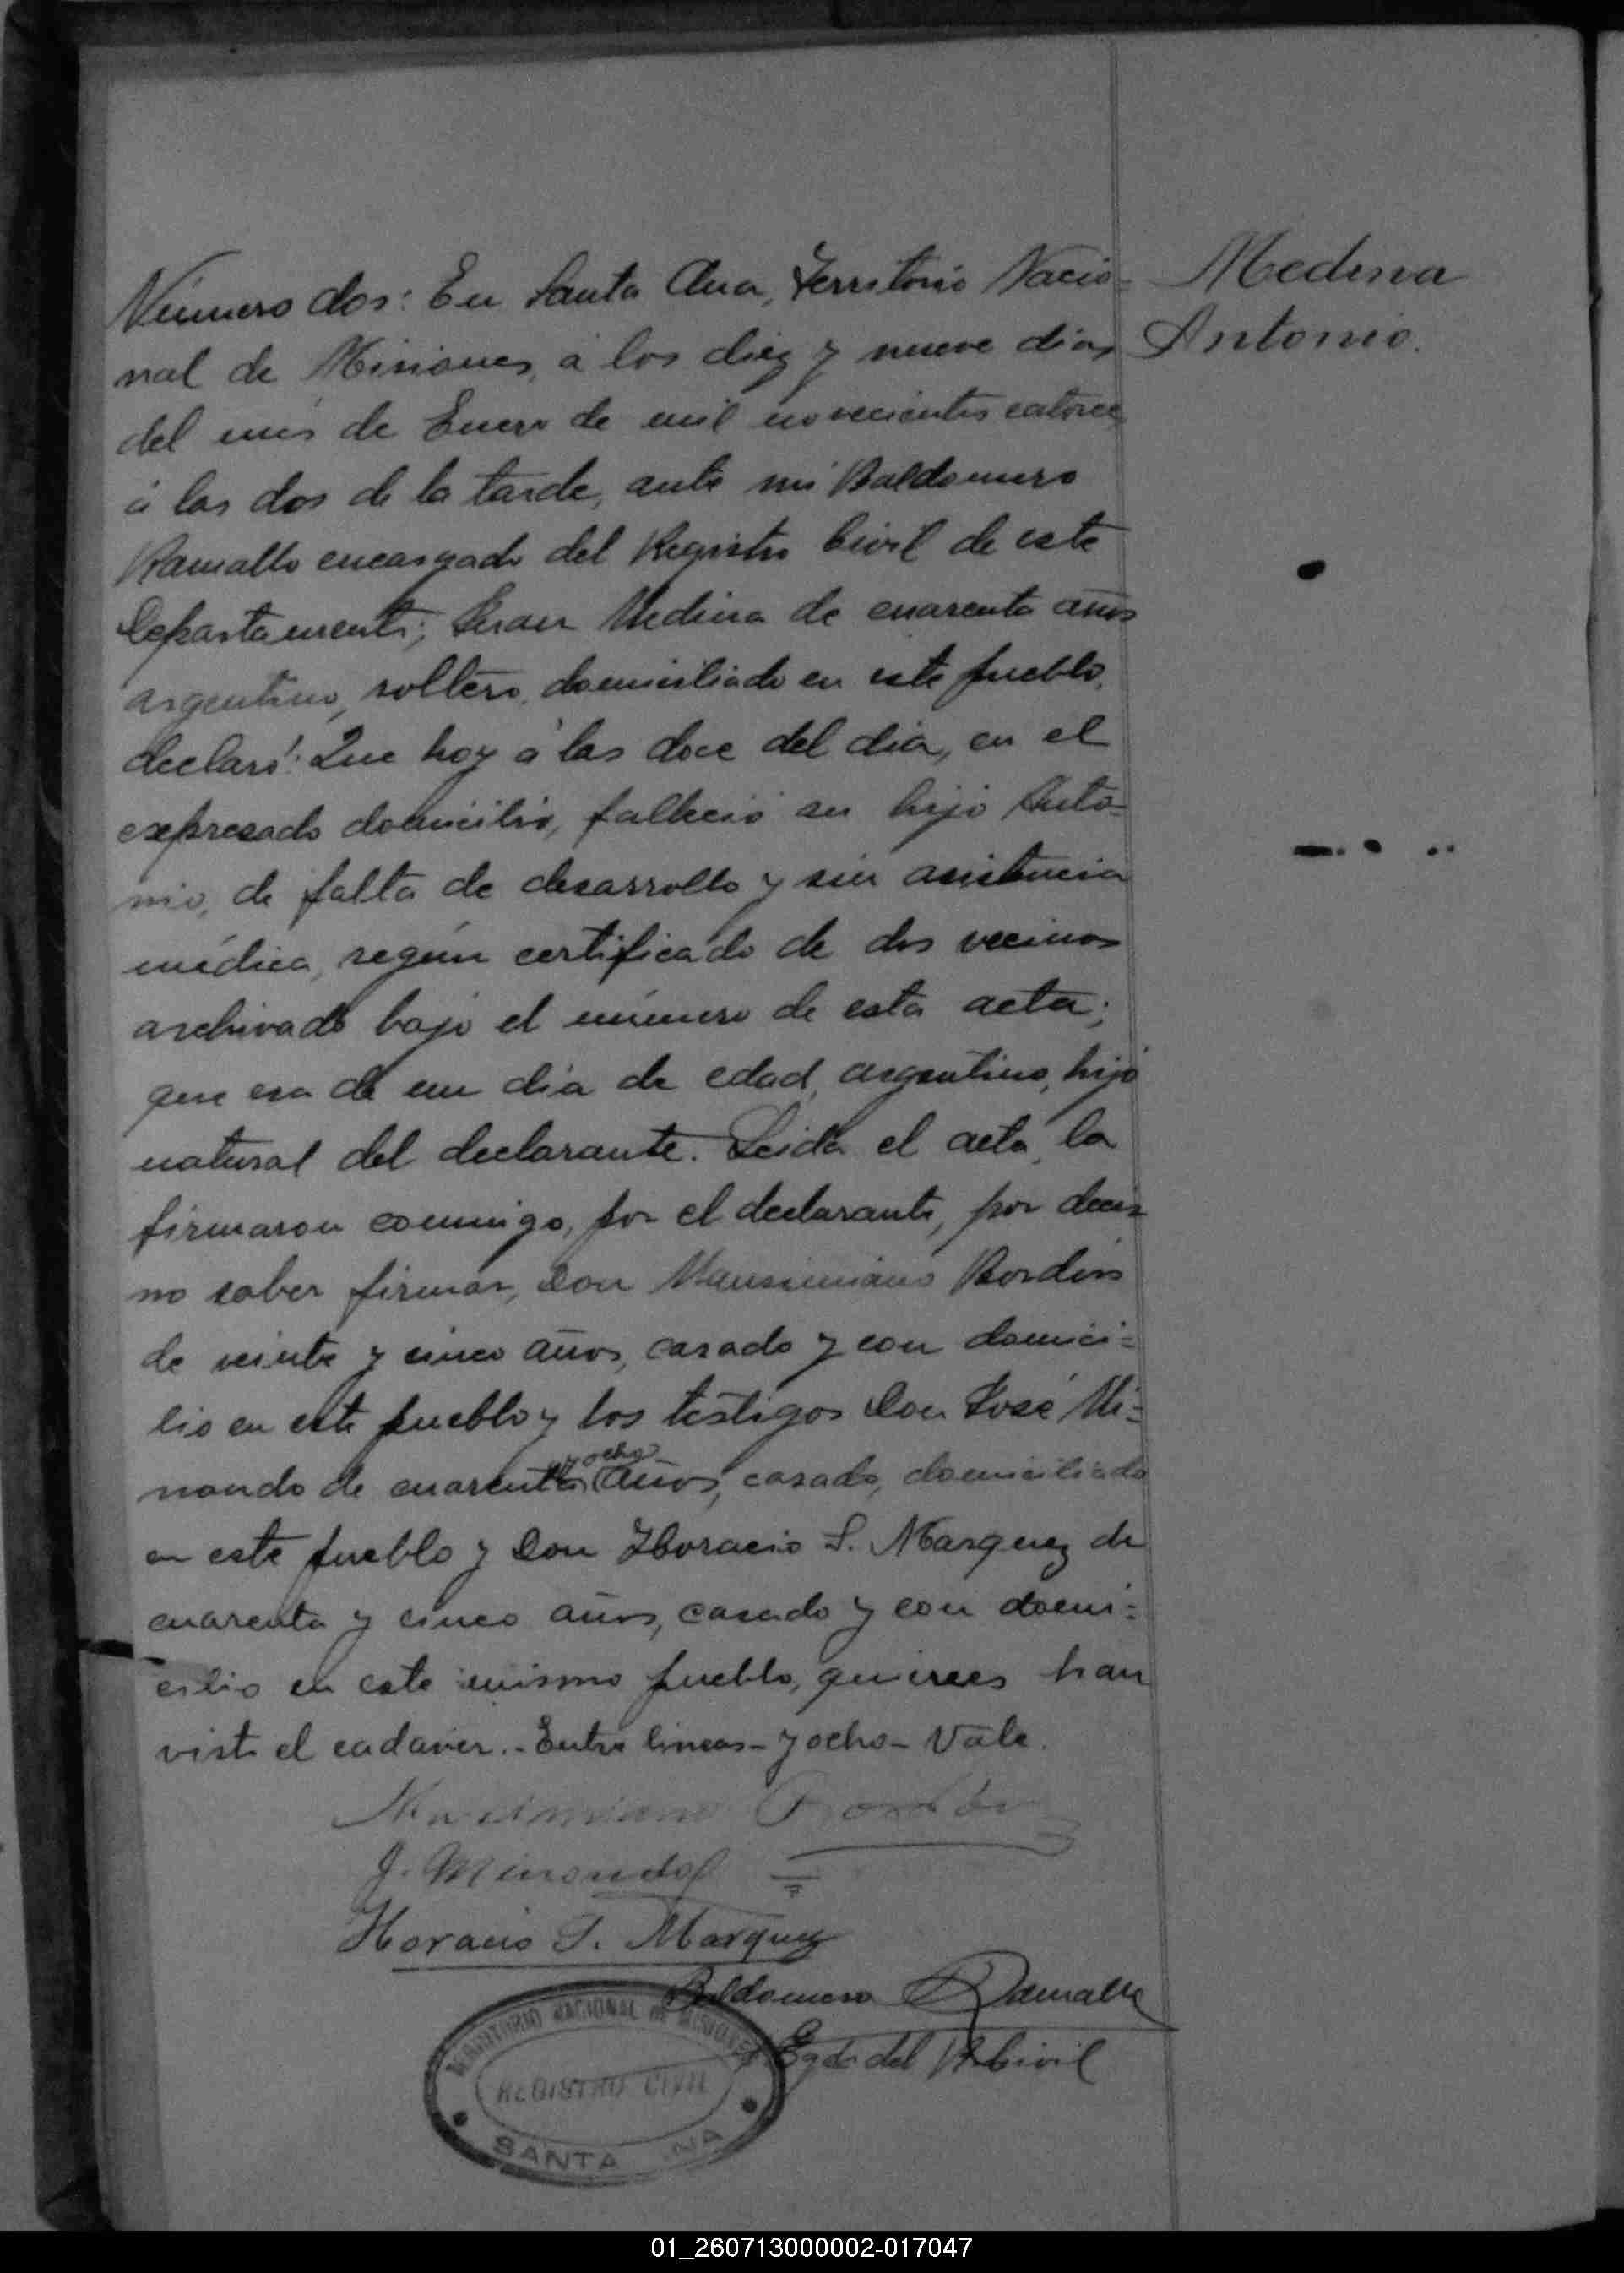 Número dos: En Santa Ana, Territorio Nacio-
nal de Misiones, á los diez y nueve dias
del mes de Enero de mil novecientos catorce,
á las dos de la tarde, ante mi Baldomero
Ramallo encargado del Registro Civil de este
Departamento; Juan Medina de cuarenta años
argentino, soltero, domiciliado en este pueblo,
declaró: Que hoy á las doce del dia, en el
expresado domicilio, falleció su hijo Anto-
nio, de falta de desarrollo y sin asistencia
médica, según certificado de dos vecinos
archivado bajo el número de esta acta;
que era de un dia de edad, argentino, hijo
natural del declarante. Leida el acta, la
firmaron conmigo, por el declarante, por decir
no saber firmar, Don Maximiano Bordón
de veinte y cinco años, casado y con domici-
lio en este pueblo y los testigos Don José Mi-
nondo de cuarenta y ocho años, casado, domiciliado
en este pueblo y Don Horacio S. Marquez de
cuarenta y cinco años, casado y con domi-
cilio en este mismo pueblo, quienes han
visto el cadaver.- Entre lineas- y ocho- Vale.
Medina
Antonio.
Maximiano Bordón
J. Minondo
Horacio S. Marquez
Baldomero Ramallo
Egdo del R. Civil
TERRITORIO NACIONAL DE MISIONES
REGISTRO CIVIL
SANTA ANA
01_260713000002-017047